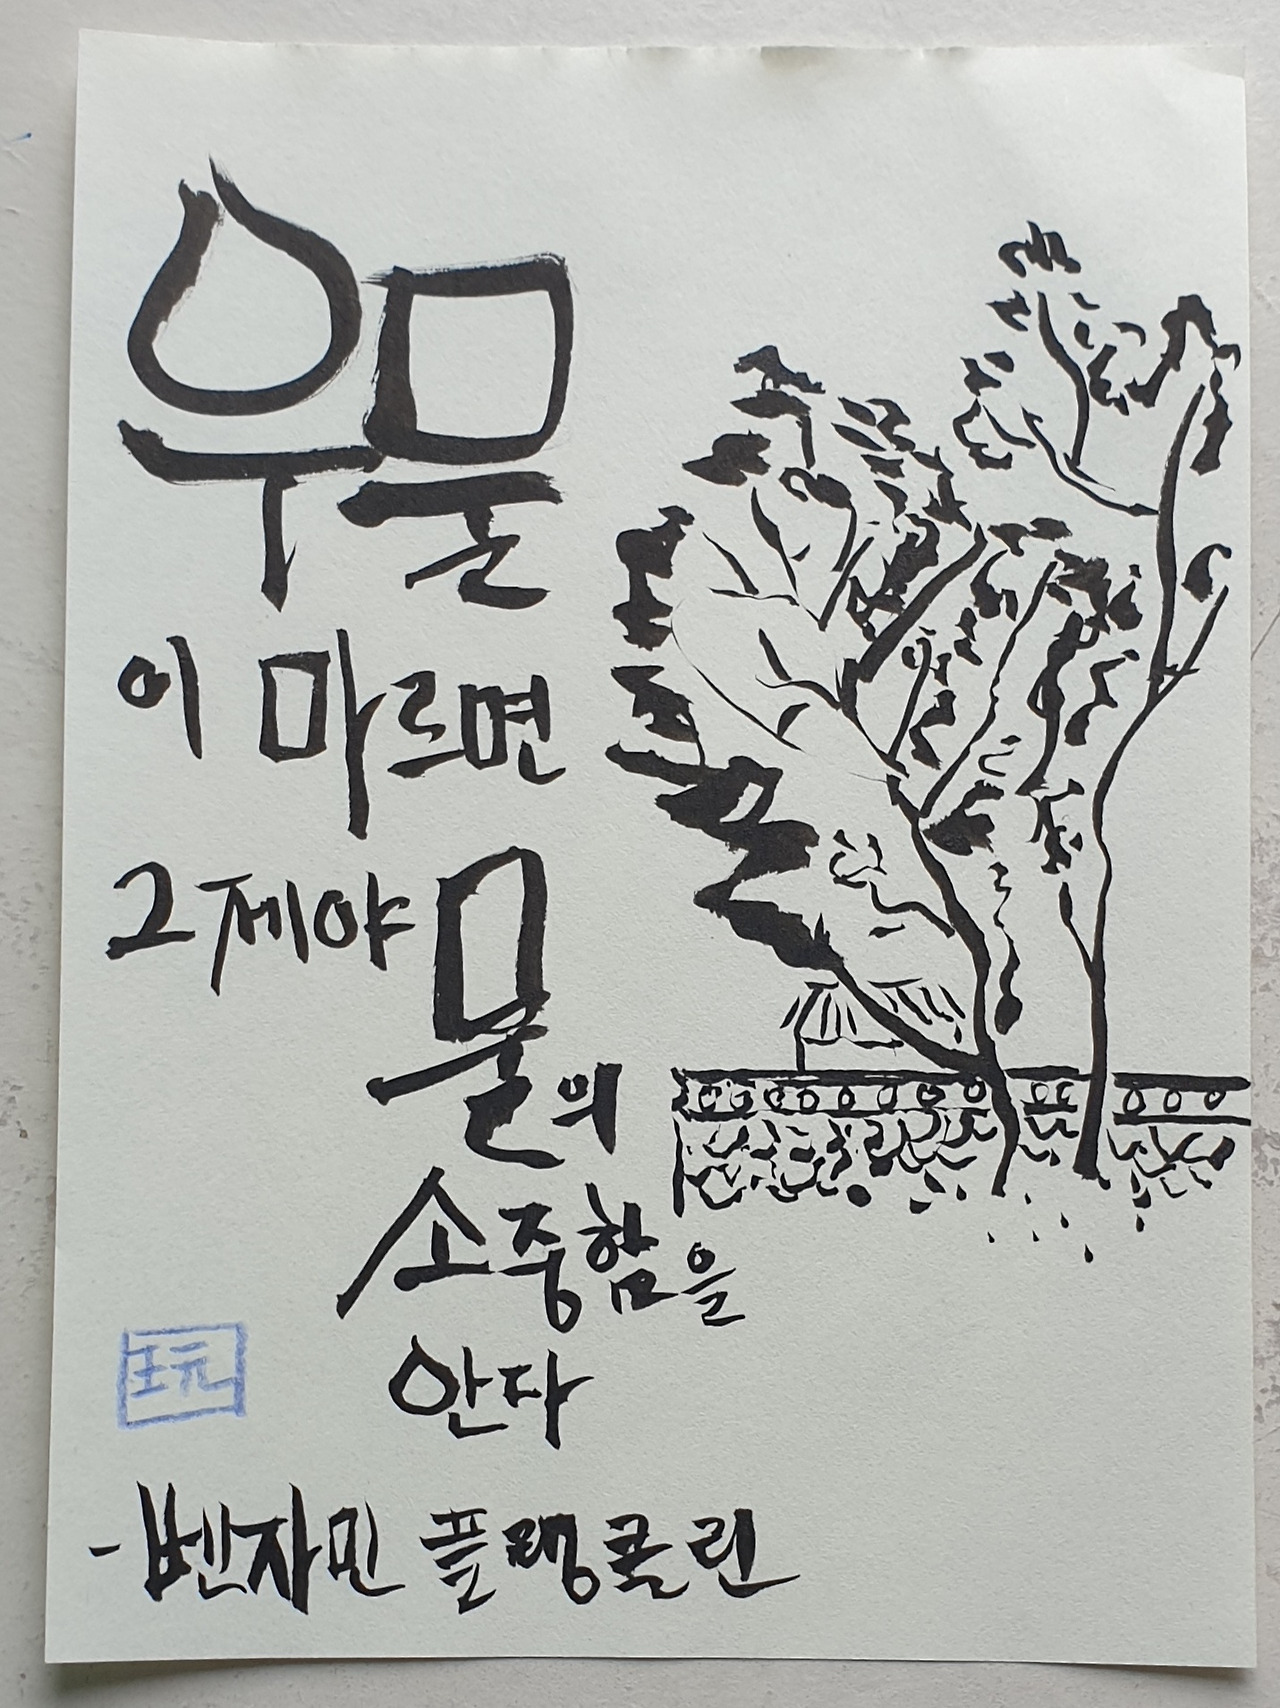 우물
이 마르면
그제야 물의
소중함을
안다
玩
-벤자민 플랭클린